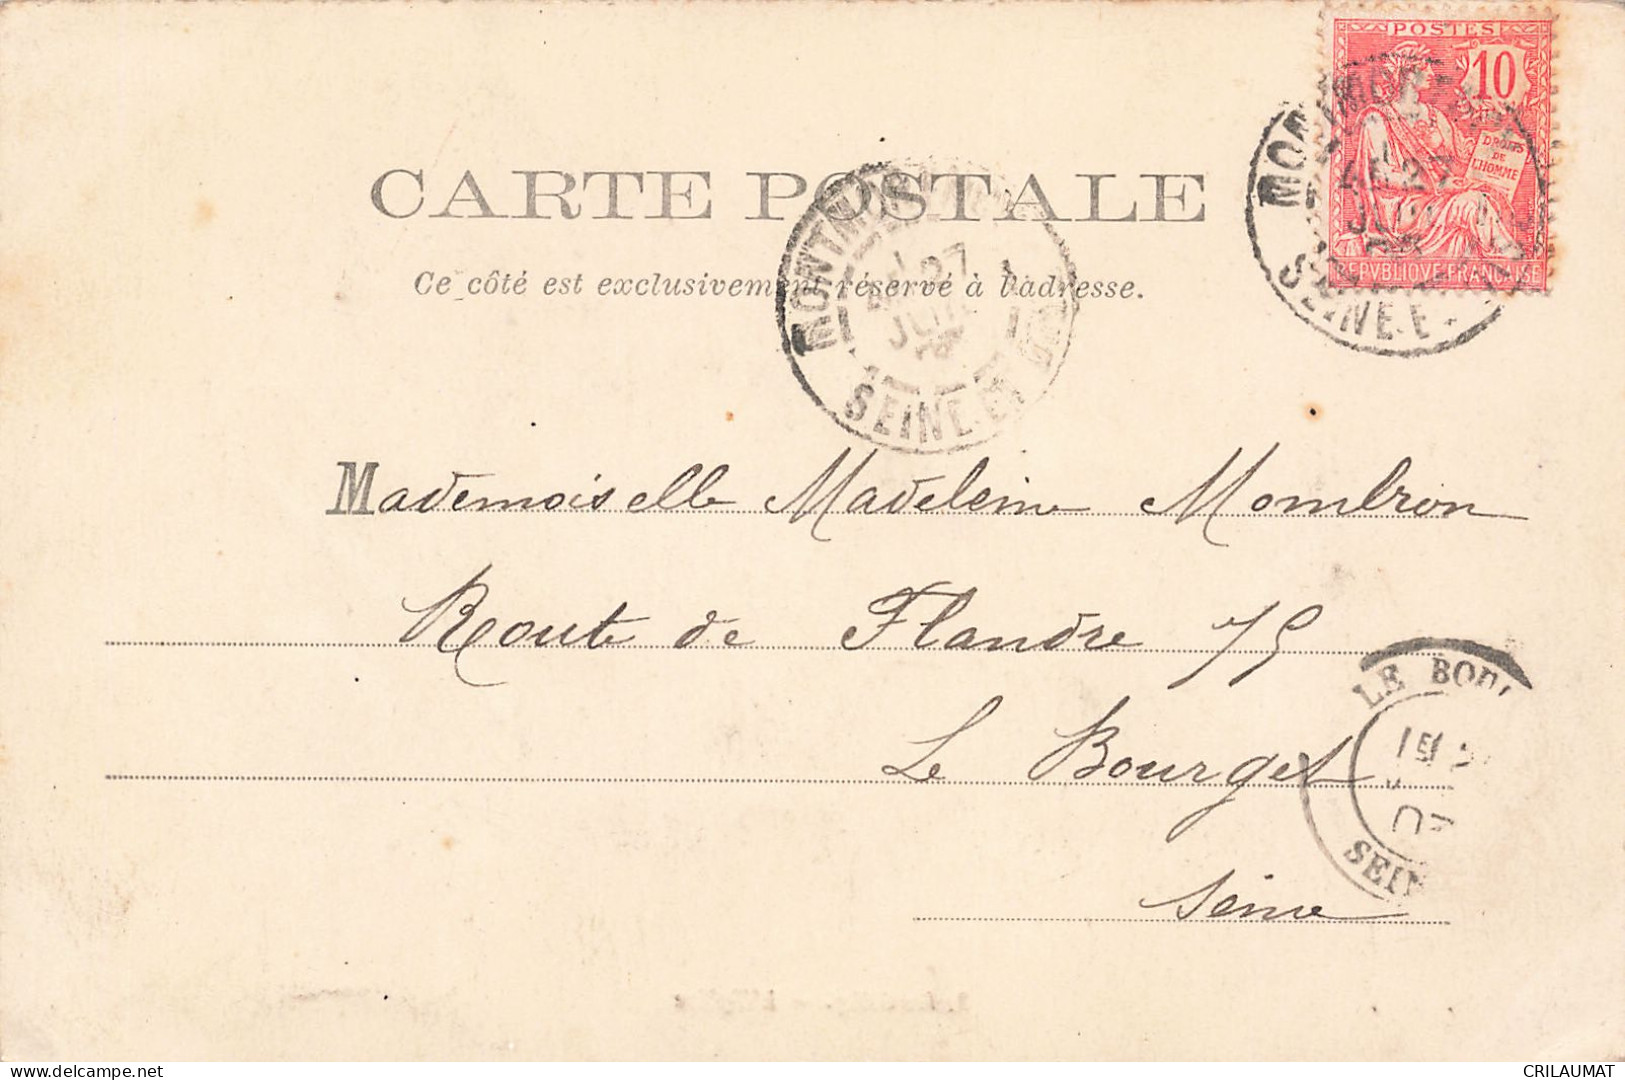 POSTES
10
DROITS
DE
L'HOMME
REPVBLIQVE FRANÇAISE
SEINE-E
CARTE POSTALE
Ce côté est exclusivement réservé à l'adresse.
27
SEINE-ET
Mademoiselle Madeleine Mombron
Route de Flandre 75
Le Bourget
Seine
LE BOU
SEIN
delcampe.net
CRILAUMAT